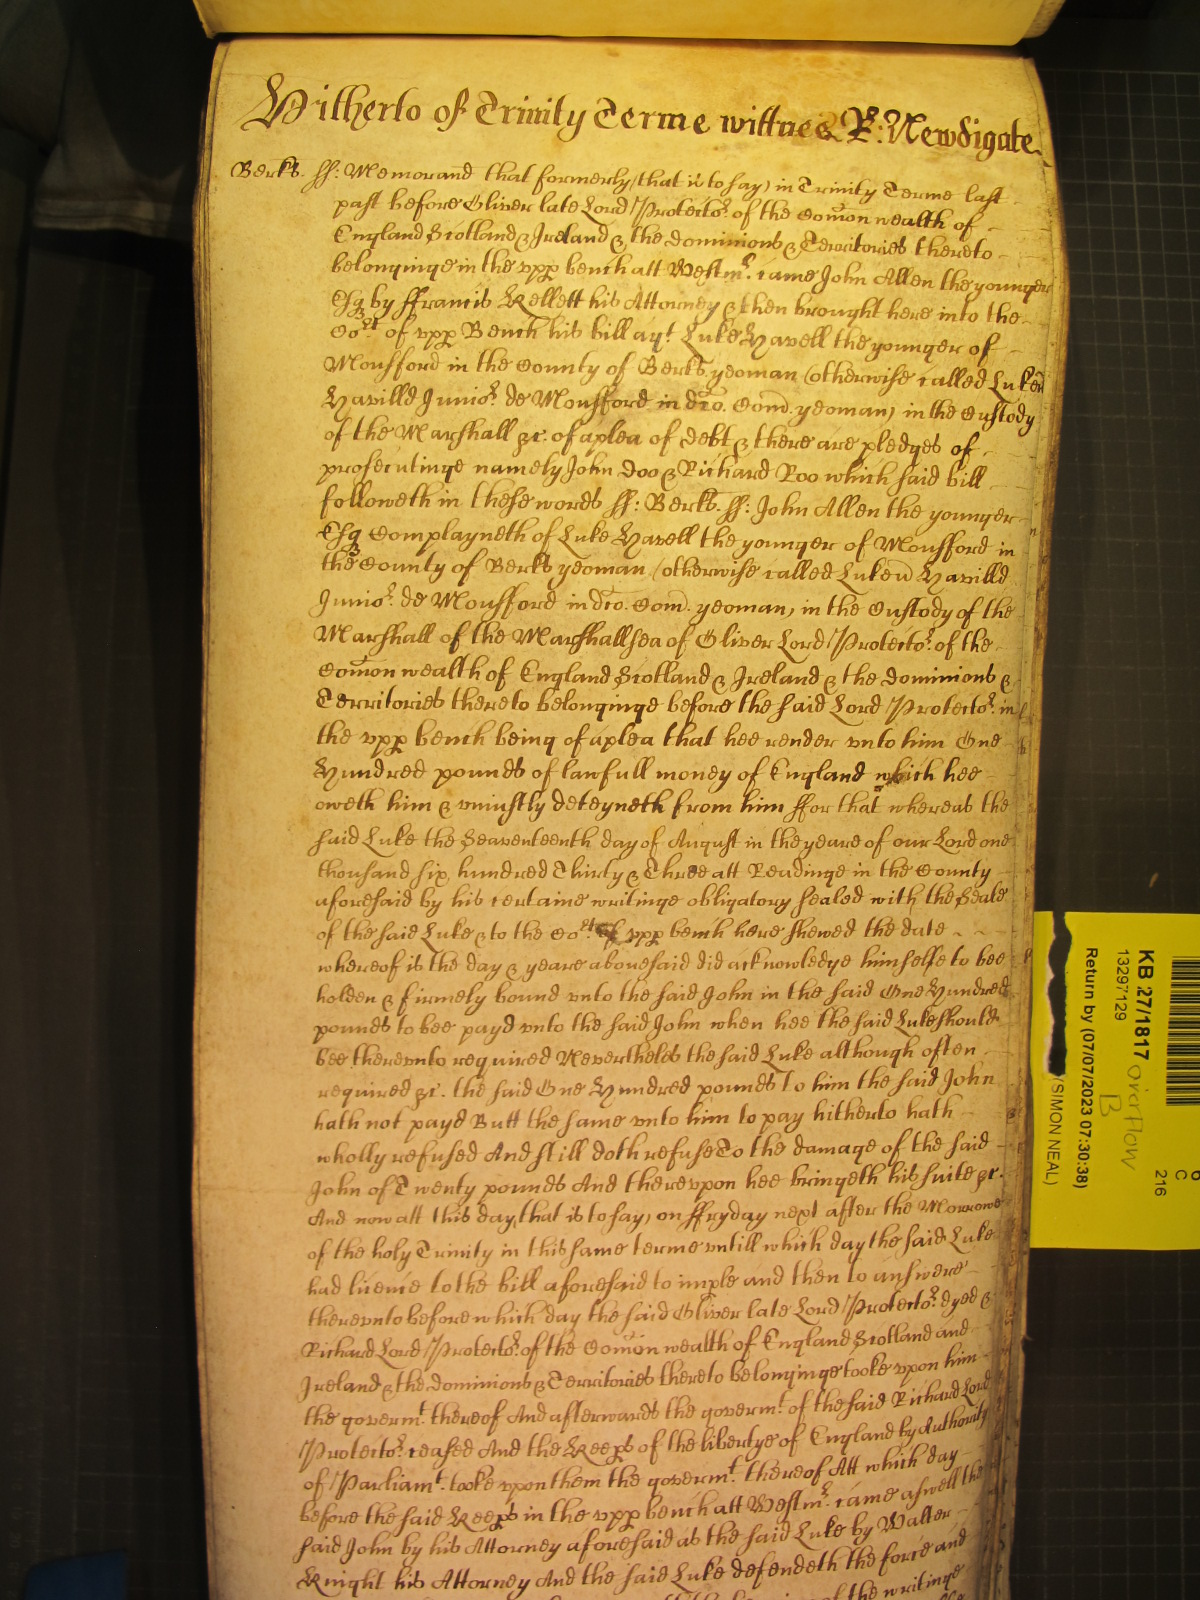 Hitherto of Trinity Terme wittnes R: Newdigate
Berks. ss: Memorand that formerly (that is to say) in Trinity Terme last
past before Oliver late Lord Protector. of the Comon wealth of
England Scotland & Ireland & the dominions & Territories thereto
belonginge in the vpp bench att Westmr. came John Allen the younger
Esq by ffrancis Kellett his Attorney & then brought here into the
Cort of vpp Bench his bill agt. Luke Havell the younger of
Moulsford in the County of Berks yeoman (otherwise called Luken
Havilld Junior. de Moulsford in dco. Com. yeoman) in the Custody
of the Marshall &c. of a plea of debt & there are pledges of
prosecutinge namely John Doo & Richard Roo which said bill
followeth in these words ss: Berks. ss: John Allen the younger
Esq Complayneth of Luke Havell the younger of Moulsford in
the County of Berks yeoman (otherwise called Luken Havilld
Junior. de Moulsford in dco. Com. yeoman) in the Custody of the
Marshall of the Marshallsea of Oliver Lord Protector. of the
Comon wealth of England Scotland & Ireland & the dominions &
Territories thereto belonginge before the said Lord Protector. in
the vpp bench being of a plea that hee render vnto him One
Hundred pounds of lawfull money of England which hee
oweth him & vniustly deteyneth from him ffor that whereas the
said Luke the Seaventeenth day of August in the yeare of our Lord one
thousand six hundred Thirty & Three att Readinge in the County
aforesaid by his certaine writinge obligatory sealed with the Seale
of the said Luke & to the Cort. of vpp bench here shewed the date
whereof is the day & yeare abouesaid did acknowledge himselfe to bee
holden & firmely bound vnto the said John in the said One Hundred
pounds to bee payd vnto the said John when hee the said Luke should
bee therevnto required Nevertheles the said Luke although often
required &c. the said One Hundred pounds to him the said John
hath not payd Butt the same vnto him to pay hitherto hath
wholly refused And still doth refuse To the damage of the said
John of Twenty pounds And therevpon hee bringeth his suite &c.
And now att this day, that is to say, on ffryday next after the Morrowe
of the holy Trinity in this same terme vntill which day the said Luke
had licence to the bill aforesaid to imple and then to answere
therevnto before which day the said Oliver late Lord Protector. dyed &
Richard Lord Protector. of the Comon wealth of England Scotland and
Ireland & the dominions & Territories thereto belonginge tooke vpon him
the govermt. thereof And afterwards the govermt. of the said Richard Lord
Protector. ceased And the Keeps of the libertye of England by Authority
of Parliamt. tooke vpon them the govermt. thereof Att which day
before the said Keeps in the vpp bench att Westmr. came aswell the
said John by his Attorney aforesaid as the said Luke by Walter
Knight his Attorney And the said Luke defendeth the force and
the writinge
KB 27/1817 overflow
13297129 B
Return by (07/07/2023 07:30:38)
(SIMON NEAL)
6
C
216